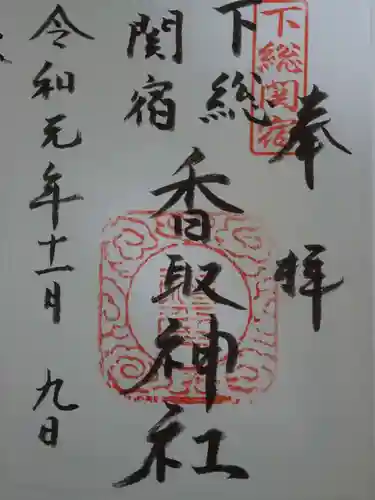 奉拝
下総関宿
下総
関宿
香取神社
令和元年十一月九日